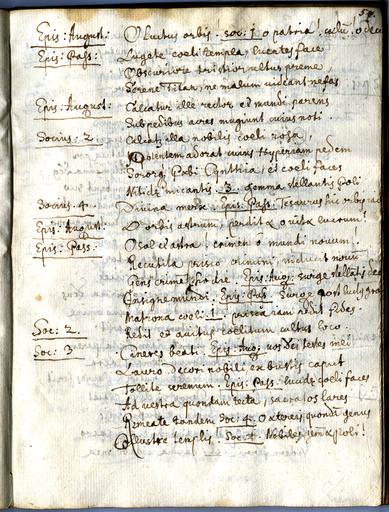 Epis: August: O luctus orbis. Soc: 1. o patria! cælum! o decus
Epis: Pass: Lugete coeli templa, lucentes face
Obscuriore tristior vultus preme,
Serene Titan, ne malum videant nefas
Epis: August: Calcatur ille rector et mundi parens
Sub pedibus acres mugiunt cuius noti.
Socius. 2. Calcatur illa nobilis coeli rosa,
potentem adorat cuius Hyperiam pedem
Soror Phoebi Cynthia, et coeli faces
Nitide micantis. 3. Gemma stellantis poli
Socius. 4. Divina merx, Epis: Pass: Tesaurus hic orbis
Epis: August: O orbis astrum, perdita o vita lucrum!
Epis: Pass: O sol et astra! crimen o mundi novum!
Recutita prisco crimini inducit novum
Gens crimen hodie. Epis: Aug: surge stellatis
Insigne mundi. Epis: Pass: Surge
Matrona coeli 1. patream redit sedes.
Soc: 2. Redit et avitus coelitum cultus loco.
Soc: 3 Cineres beati. Epis: Aug: vos Dei testes mei
Lauro decori nobili ex bustis caput
Tollite serenum. Epis: Pass: lucidæ coeli faces
Ad vestra quondam tecta, sacratos lares
Remeate tandem Soc: 4. O ceteris quondam genus
Illustre templis Soc: 1. Nobiles gemmæ poli!